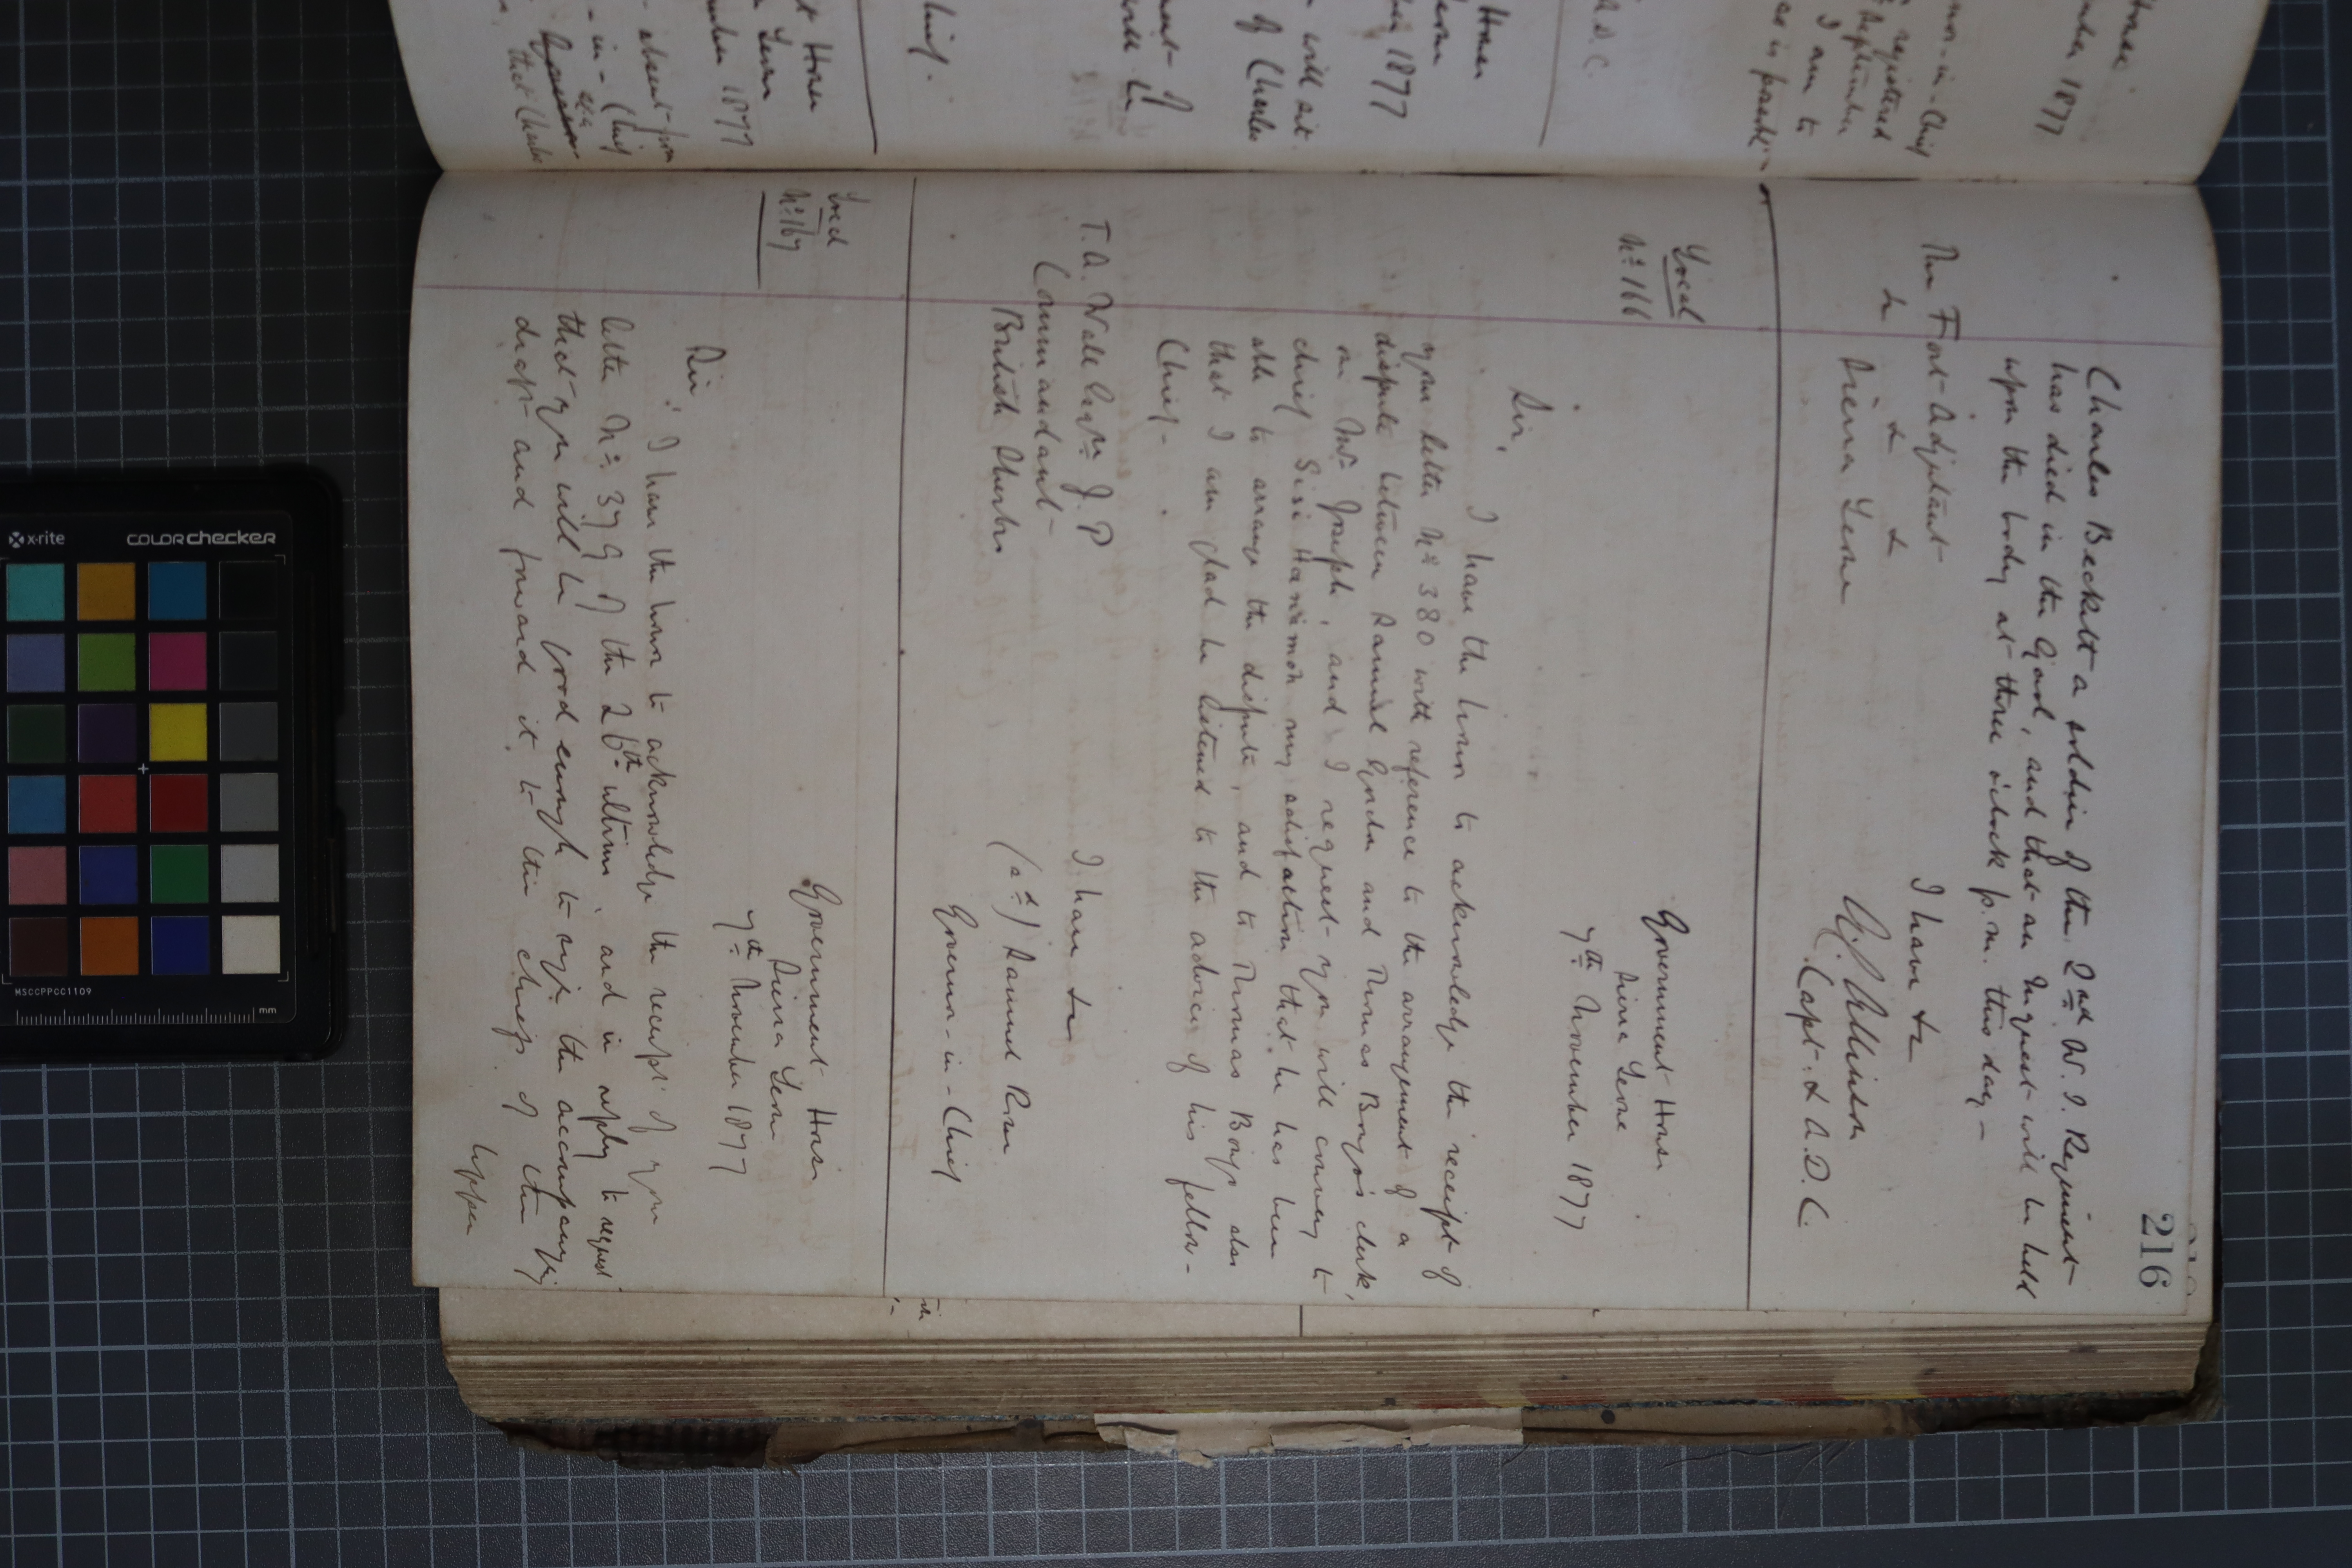 216
Charles Beckett a soldier of the 2nd W. I. Regiment
has died in the Gaol, and that an Inquest will be held
upon the body at three o'clock p.m. this day -
I have &c
The Fort Adjutant
& & &
Sierra Leone
Capt. & A.D.C.
Local
No. 166
Government House
Sierra Leone
7th November 1877
Sir,
I have the honor to acknowledge the receipt of
your letter No 380 with reference to the arrangement of a
dispute between Samuel and Thomas Bongo's clerk,
on Mr Joseph, and I request you will convey to
chief my satisfaction that he has been
able to arrange the dispute, and to Thomas Bongo also
that I am glad he listened to the advice of his fellow-
Chief -
I have &c
T. A. Wall Esqre J. P
Commandant
British Sherbro
(sd) Samuel Rowe
Governor-in-Chief
Local
No. 167
Government House
Sierra Leone
7th November 1877
Sir,
I have the honor to acknowledge the receipt of your
letter No. 379 of the 26th ultimo, and in reply to request
that you will be good enough to sign the accompanying
draft and forward it to the chiefs of the
Upper
1877
Governor-in-Chief
registered
September
I am to
as is possible
A.D.C.
House
1877
will sit
of Charles
House
1877
absent from
in-Chief
that Charles
x-rite
colorchecker
MSCCPPCC1109
mm